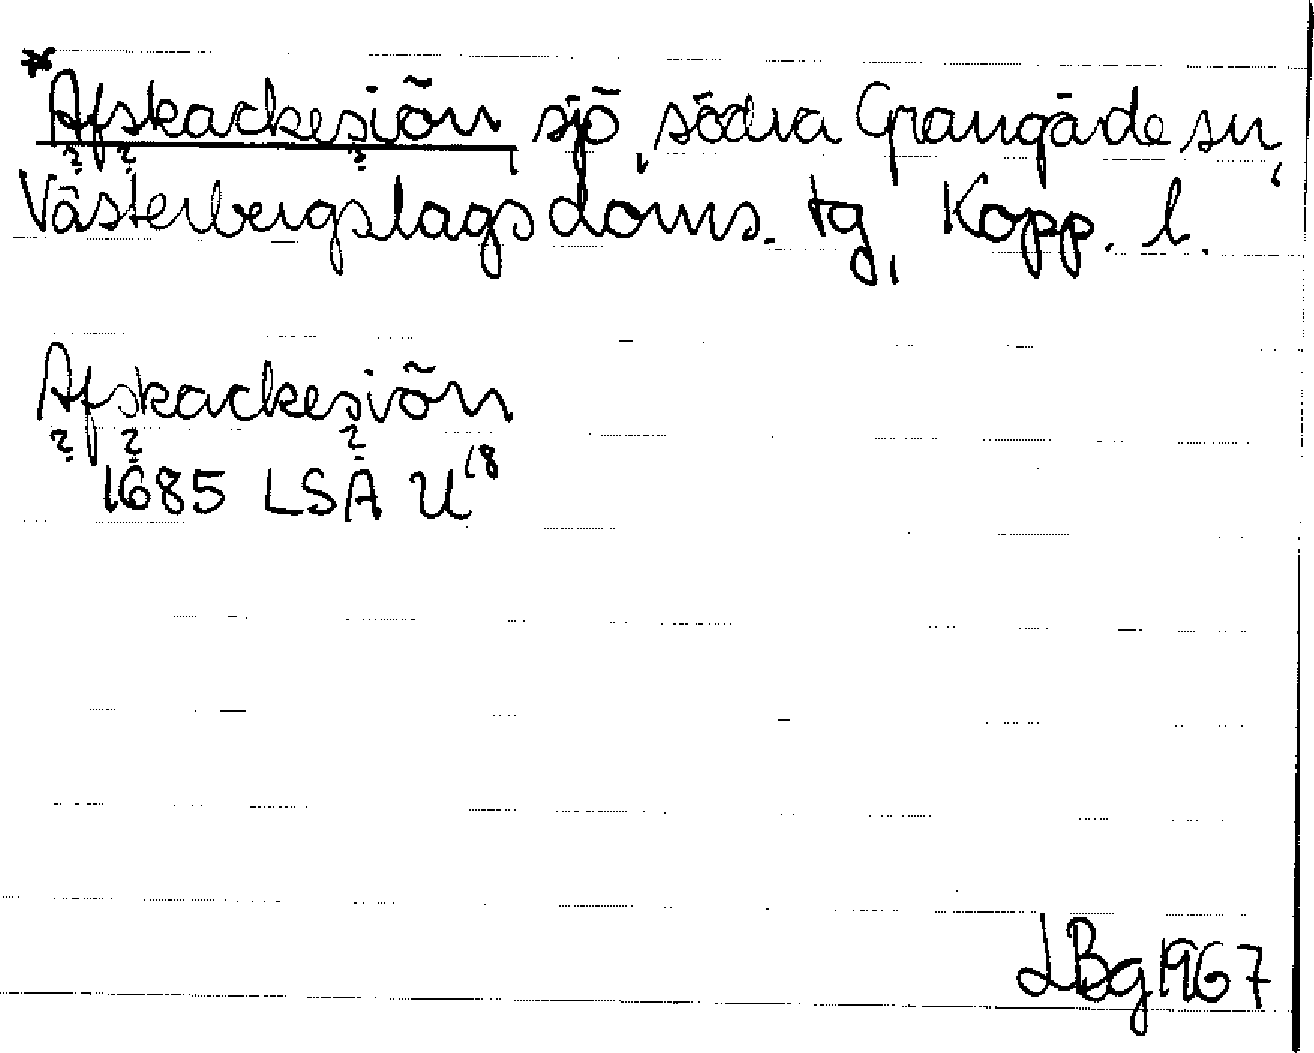 *Afskackesiõn, sjö, södra Grangärde sn,
? ? ?
Västerbergslags doms. tg, Kopp. l.
Afskackesiõn
? ? ?
1685 LSA U18
LBg 1967